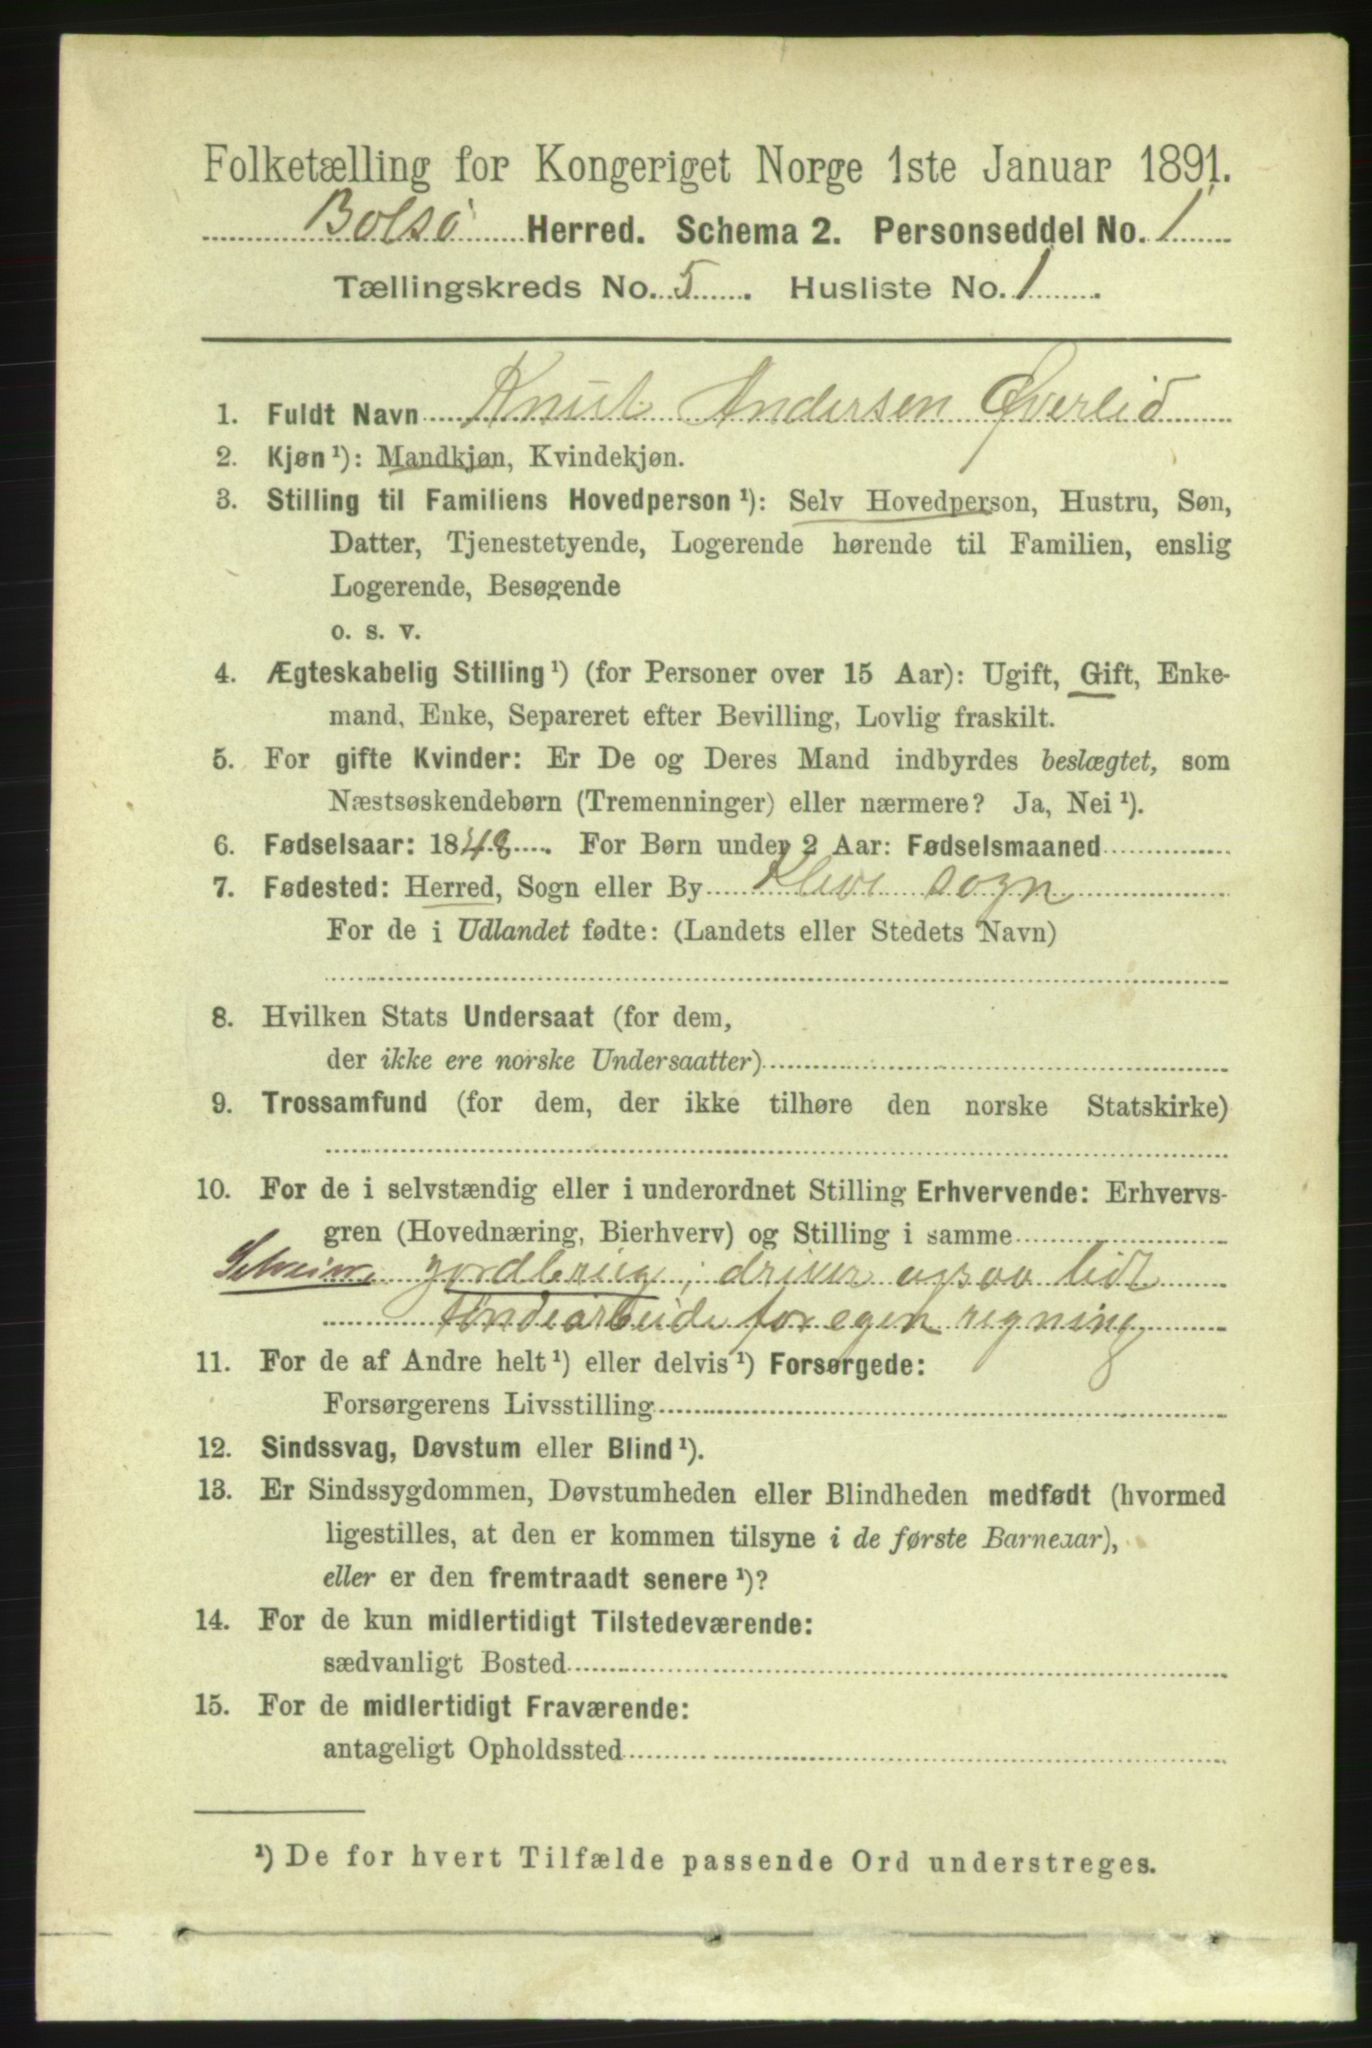 Folketælling for Kongeriget Norge 1ste Januar 1891.
Bolsö Herred. Schema 2. Personseddel No. 1
Tællingskreds No. 5. Husliste No. 1.
1. Fuldt Navn Knut Andersen Øverlid
2. Kjøn ¹): Mandkjøn, Kvindekjøn.
3. Stilling til Familiens Hovedperson ¹): Selv Hovedperson, Hustru, Søn,
Datter, Tjenestetyende, Logerende hørende til Familien, enslig
Logerende, Besøgende
o. s. v.
4. Ægteskabelig Stilling ¹) (for Personer over 15 Aar): Ugift, Gift, Enke-
mand, Enke, Separeret efter Bevilling, Lovlig fraskilt.
5. For gifte Kvinder: Er De og Deres Mand indbyrdes beslægtet, som
Næstsøskendebørn (Tremenninger) eller nærmere? Ja, Nei ¹).
6. Fødselsaar: 1848. For Børn under 2 Aar: Fødselsmaaned
7. Fødested: Herred, Sogn eller By Kleve sogn
For de i Udlandet fødte: (Landets eller Stedets Navn)
8. Hvilken Stats Undersaat (for dem,
der ikke ere norske Undersaatter)
9. Trossamfund (for dem, der ikke tilhøre den norske Statskirke)
10. For de i selvstændig eller i underordnet Stilling Erhvervende: Erhvervs-
gren (Hovednæring, Bierhverv) og Stilling i samme
Selveier, jordbrug; driver ogsaa lidt
tøndearbeide for egen regning
11. For de af Andre helt ¹) eller delvis ¹) Forsørgede:
Forsørgerens Livsstilling
12. Sindssvag, Døvstum eller Blind ¹).
13. Er Sindssygdommen, Døvstumheden eller Blindheden medfødt (hvormed
ligestilles, at den er kommen tilsyne i de første Barneaar),
eller er den fremtraadt senere ¹)?
14. For de kun midlertidigt Tilstedeværende:
sædvanligt Bosted
15. For de midlertidigt Fraværende:
antageligt Opholdssted
¹) De for hvert Tilfælde passende Ord understreges.